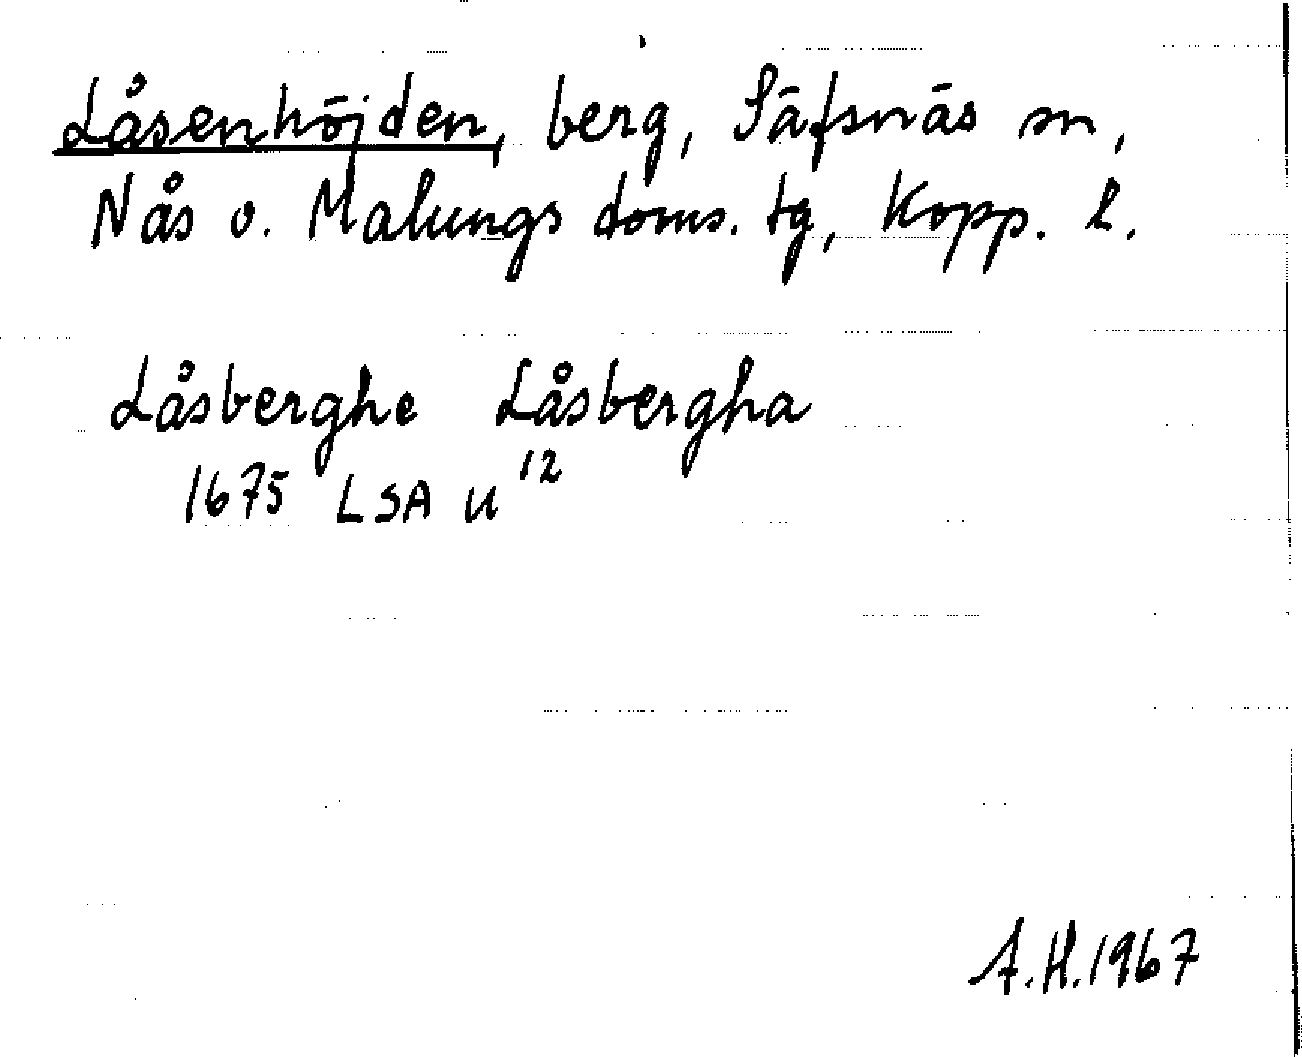 Låsenhöjden, berg, Säfsnäs sn,
Nås o. Malungs doms. tg, Kopp. l.
Låsberghe Låsbergha
1675 LSA U 12
A.H. 1967